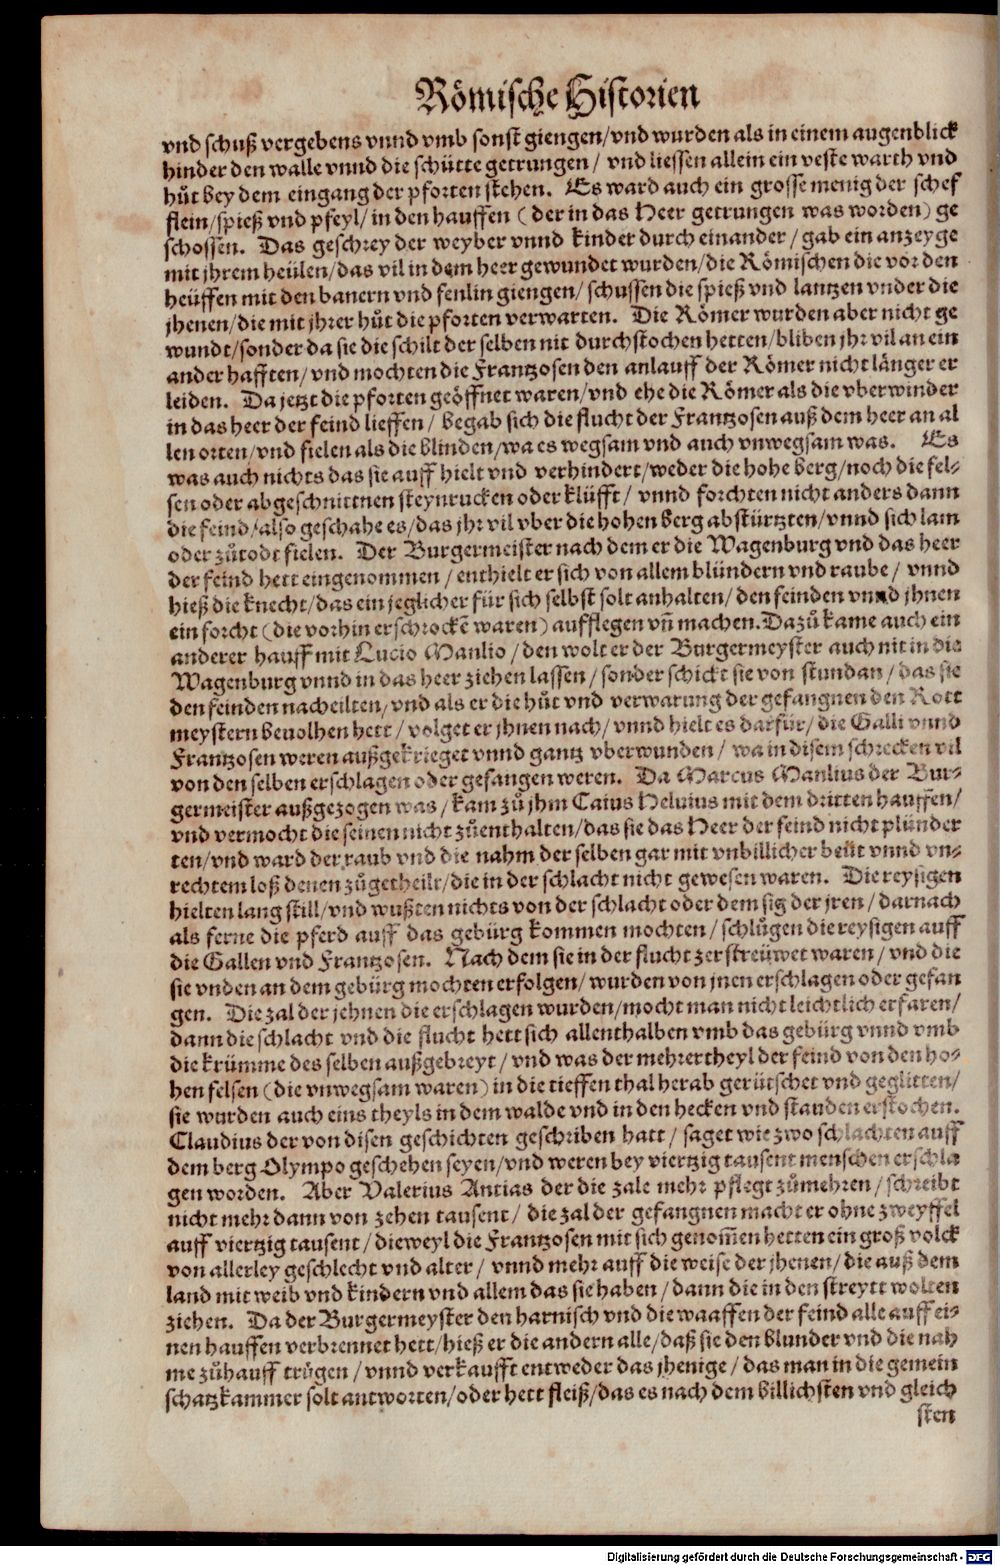 Römische Historien
vnd schuß vergebens vnnd vmb sonst giengen/vnd wurden als in einem augenblick
hinder den walle vnnd die schütte getrungen/ vnd liessen allein ein veste warth vnd
hůt bey dem eingang der pforten stehen. Es ward auch ein grosse menig der schef
flein/spieß vnd pfeyl/in den hauffen (der in das Heer getrungen was worden) ge
schossen. Das geschrey der weyber vnnd kinder durch einander/gab ein anzeyge
mit jhrem heülen/das vil in dem heer gewundet wurden/die Römischen die vor den
heüffen mit den banern vnd fenlin giengen/ schussen die spieß vnd lantzen vnder die
jhenen/die mit jhrer hůt die pforten verwarten. Die Römer wurden aber nicht ge
wundt/sonder da sie die schilt der selben nit durchstochen hetten/bliben jhr vil an ein
ander hafften/vnd mochten die Frantzosen den anlauff der Römer nicht länger er
leiden. Da jetzt die pforten geöffnet waren/vnd ehe die Römer als die vberwinder
in das heer der feind lieffen/ begab sich die flucht der Frantzosen auß dem heer an al
len orten/vnd fielen als die blinden/wa es wegsam vnd auch vnwegsam was. Es
was auch nichts das sie auff hielt vnd verhindert/weder die hohe berg/noch die fel-
sen oder abgeschnittnen steynrucken oder klüfft/ vnnd forchten nicht anders dann
die feind/also geschahe es/das jhr vil vber die hohen berg abstürtzten/vnnd sich lam
oder zůtodt fielen. Der Burgermeister nach dem er die Wagenburg vnd das heer
der feind hett eingenommen/enthielt er sich von allem blündern vnd raube/ vnnd
hieß die knecht/das ein jeglicher für sich selbst solt anhalten/den feinden vnnd jhnen
ein forcht (die vorhin erschrockē waren) aufflegen vñ machen. Dazů kame auch ein
anderer hauff mit Lucio Manlio/den wolt er der Burgermeyster auch nit in die
Wagenburg vnnd in das heer ziehen lassen/sonder schickt sie von stundan/das sie
den feinden nacheilten/vnd als er die hůt vnd verwarung der gefangnen den Rott
meystern beuolhen hett/ volget er jhnen nach/vnnd hielt es darfür/die Galli vnnd
Frantzosen weren außgekrieget vnnd gantz vberwunden/ wa in disem schrecken vil
von den selben erschlagen oder gefangen weren. Da Marcus Manlius der Bur-
germeister außgezogen was/kam zů jhm Caius Heluius mit dem dritten hauffen/
vnd vermocht die seinen nicht zůenthalten/das sie das Heer der feind nicht plünder
ten/vnd ward der raub vnd die nahm der selben gar mit vnbillicher beüt vnnd vn-
rechtem loß denen zůgetheilt/die in der schlacht nicht gewesen waren. Die reysigen
hielten lang still/vnd wußten nichts von der schlacht oder dem sig der jren/darnach
als ferne die pferd auff das gebürg kommen mochten/schlůgen die reysigen auff
die Gallen vnd Frantzosen. Nach dem sie in der flucht zerstreüwet waren/vnd die
sie vnden an dem gebürg mochten erfolgen/wurden von jnen erschlagen oder gefan
gen. Die zal der jehnen die erschlagen wurden/mocht man nicht leichtlich erfaren/
dann die schlacht vnd die flucht hett sich allenthalben vmb das gebürg vnnd vmb
die krümme des selben außgebreyt/vnd was der mehrertheyl der feind von den ho-
hen felsen (die vnwegsam waren) in die tieffen thal herab gerütschet vnd geglitten/
sie wurden auch eins theyls in dem walde vnd in den hecken vnd stauden erstochen.
Claudius der von disen geschichten geschriben hatt/ saget wie zwo schlachten auff
dem berg Olympo geschehen seyen/vnd weren bey viertzig tausent menschen erschla
gen worden. Aber Valerius Antias der die zale mehr pflegt zůmehren/schreibt
nicht mehr dann von zehen tausent/ die zal der gefangnen macht er ohne zweyffel
auff viertzig tausent/dieweyl die Frantzosen mit sich genom̃en hetten ein groß volck
von allerley geschlecht vnd alter/ vnnd mehr auff die weise der jhenen/die auß dem
land mit weib vnd kindern vnd allem das sie haben/dann die in den streytt wolten
ziehen. Da der Burgermeyster den harnisch vnd die waaffen der feind alle auff ei-
nen hauffen verbrennet hett/hieß er die andern alle/daß sie den blunder vnd die nah
me zůhauff trůgen/vnnd verkaufft entweder das jhenige/das man in die gemein
schatzkammer solt antworten/oder hett fleiß/das es nach dem billichsten vnd gleich
sten
Digitalisierung gefördert durch die Deutsche Forschungsgemeinschaft - DFG